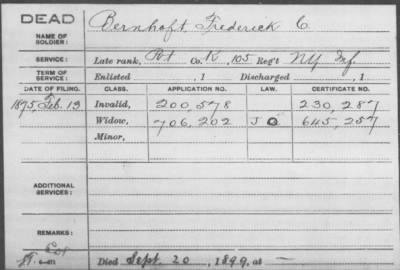 DEAD
NAME OF SOLDIER:
Bernhoft, Frederick C.
SERVICE: Late rank, Pvt Co. K, 105 Reg't NY Inf.
TERM OF SERVICE: Enlisted , 1 Discharged , 1
DATE OF FILING. CLASS. APPLICATION NO. LAW. CERTIFICATE NO.
1875, Feb. 13 Invalid, 200,578 230,287
Widow, 706,202 645,257
Minor,
ADDITIONAL SERVICES:
REMARKS:
Died Sept. 20, 1899, at —